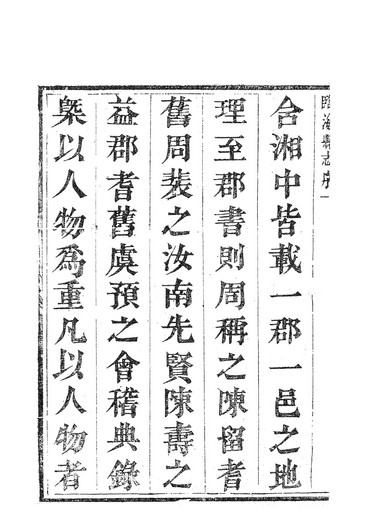 臨海縣志序
含湘中皆載一郡一邑之地
理至郡書則周稱之陳留耆
舊周裴之汝南先賢陳壽之
益郡耆舊虞預之會稽典錄
槩以人物爲重凡以人物者